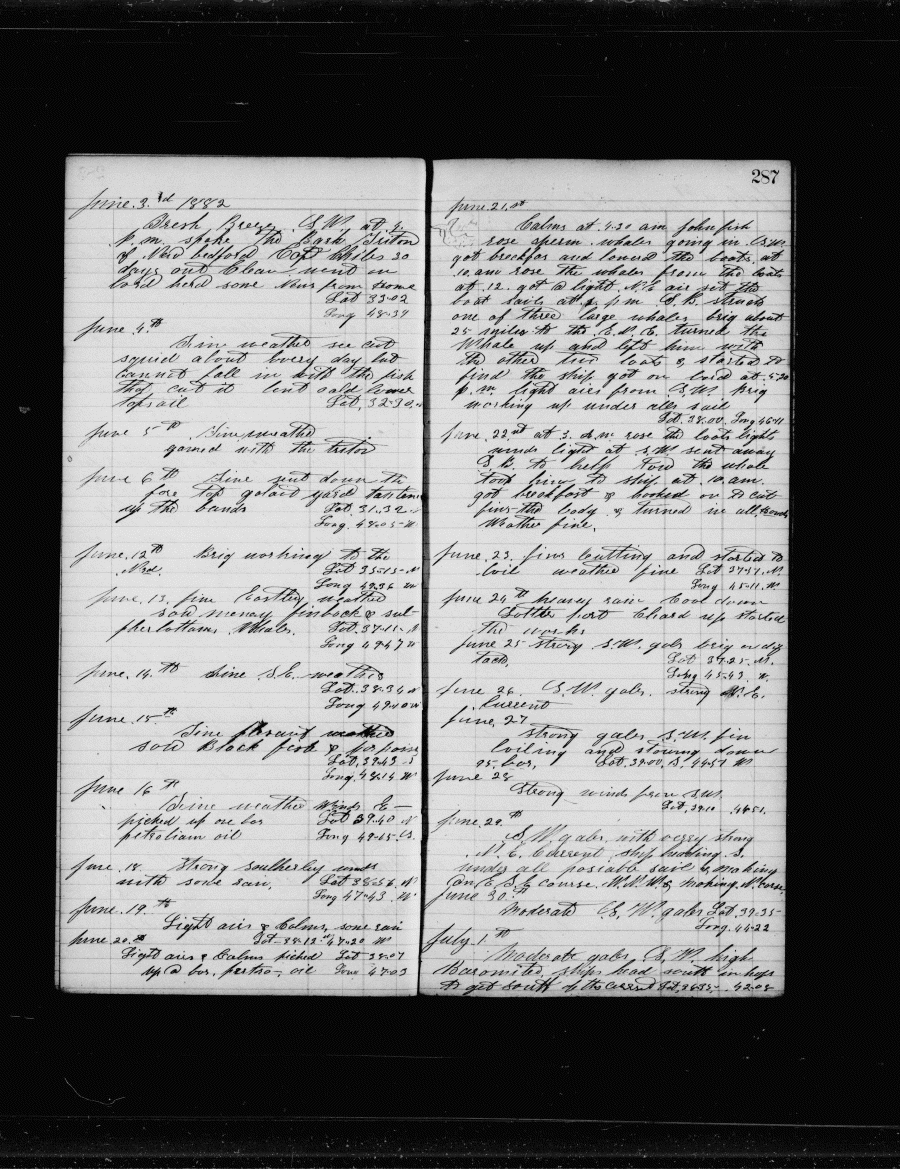 June 3rd 1882
Fresh Breeze S.W. at 4
p.m. spoke the Bark Triton
of New bedford Capt Whites 20
days out Clean went on
bord herd some News from Home
Lat 33-02
Long 48-39
June 4th
Fine weather see cut
squid about every day but
cannot fall in with the fish
that cut it bent old lower
topsail Lat 32-30
June 5th Fine weathe
gamed with the triton
June 6th Fine sent down the
fore top galant yard
up the bands Lat 31.32
Long 48-05-W
June 12th Brig working to the
Nrd. Lat 35-15-N
Long 49-36 W
June 13. fine Eastley weather
saw meney finback & sul-
pherbottom Whales. Lat 37-11-N
Long 49-47 W
June 14th Fine S.E. weather
Lat 38-34 N
Long 49-10 W
June 15th
Fine plesant weather
saw Black fish & porpoises
Lat 39-43
Long 48-14 W
June 16th
Fine weather Winds E-
picked up one bar Lat 39.40 N
petroliam oil Long 48-45
June 18 Strong southerley winds
with some rain. Lat 38-56 N
Long 47-43 W
June 19th
Light airs & Calms, some rain
June 20th Lat-38-12 47-20 W
Light airs & Calms picked Lat 38-07
up a bar. petro- oil Long 47-03
287
June 21st
Calms at 4-30 am John fish
rose sperm whales going in S.W.
got breckfas and lowerd the boats at
10. am rose the whales from the boats
at 12. got a light N.E air set the
boat sails at p.m. S.B. struck
one of three large whales brig about
25 miles to the turned the
Whale up and left him with
the other two boats & started to
find the ship got on bord at 5-30
p.m. light airs from S.W. Brig
working up under all sail
Lat 38.00 Long 46-11
June 22nd at 3. A.M. rose the boats lights
winds light at S.W. sent away
S.B. to help Tow the whale
took him to ship at 10. am.
got breckfast & hooked on to cut
fins the body & turned in all hands
Weather fine.
June 23. finis Cutting and started to
boil weather fine Lat 37-57 N
Long 45-11. W.
June 24th heavey rain Cool down
Latter part Cleard up started
the works
June 25 strong S.W. gales brig on
tack. Lat 39-25-N.
Long 45-43. W.
June 26. S.W. gales. strong N.E.
Current
June 27
strong gales S.W. fin
boiling and stowing down
95. bar. Lat 39.00. 44-57 W
June 28
Strong winds from S.W.
Lat 39.10 44.51.
June 29.th
S.W. gales with verry strong
N.E. Current ship heading S.
under all posiable sail & making
an E.S.E course W.N.W. & making N. corse
June 30.th
Moderate S.W. gales Lat 39-35-
Long 44-22
July 1th
Moderate gales S.W. high
Baromiter, ships head south in hops
to get south of the Current Lat 36-35- 42-08